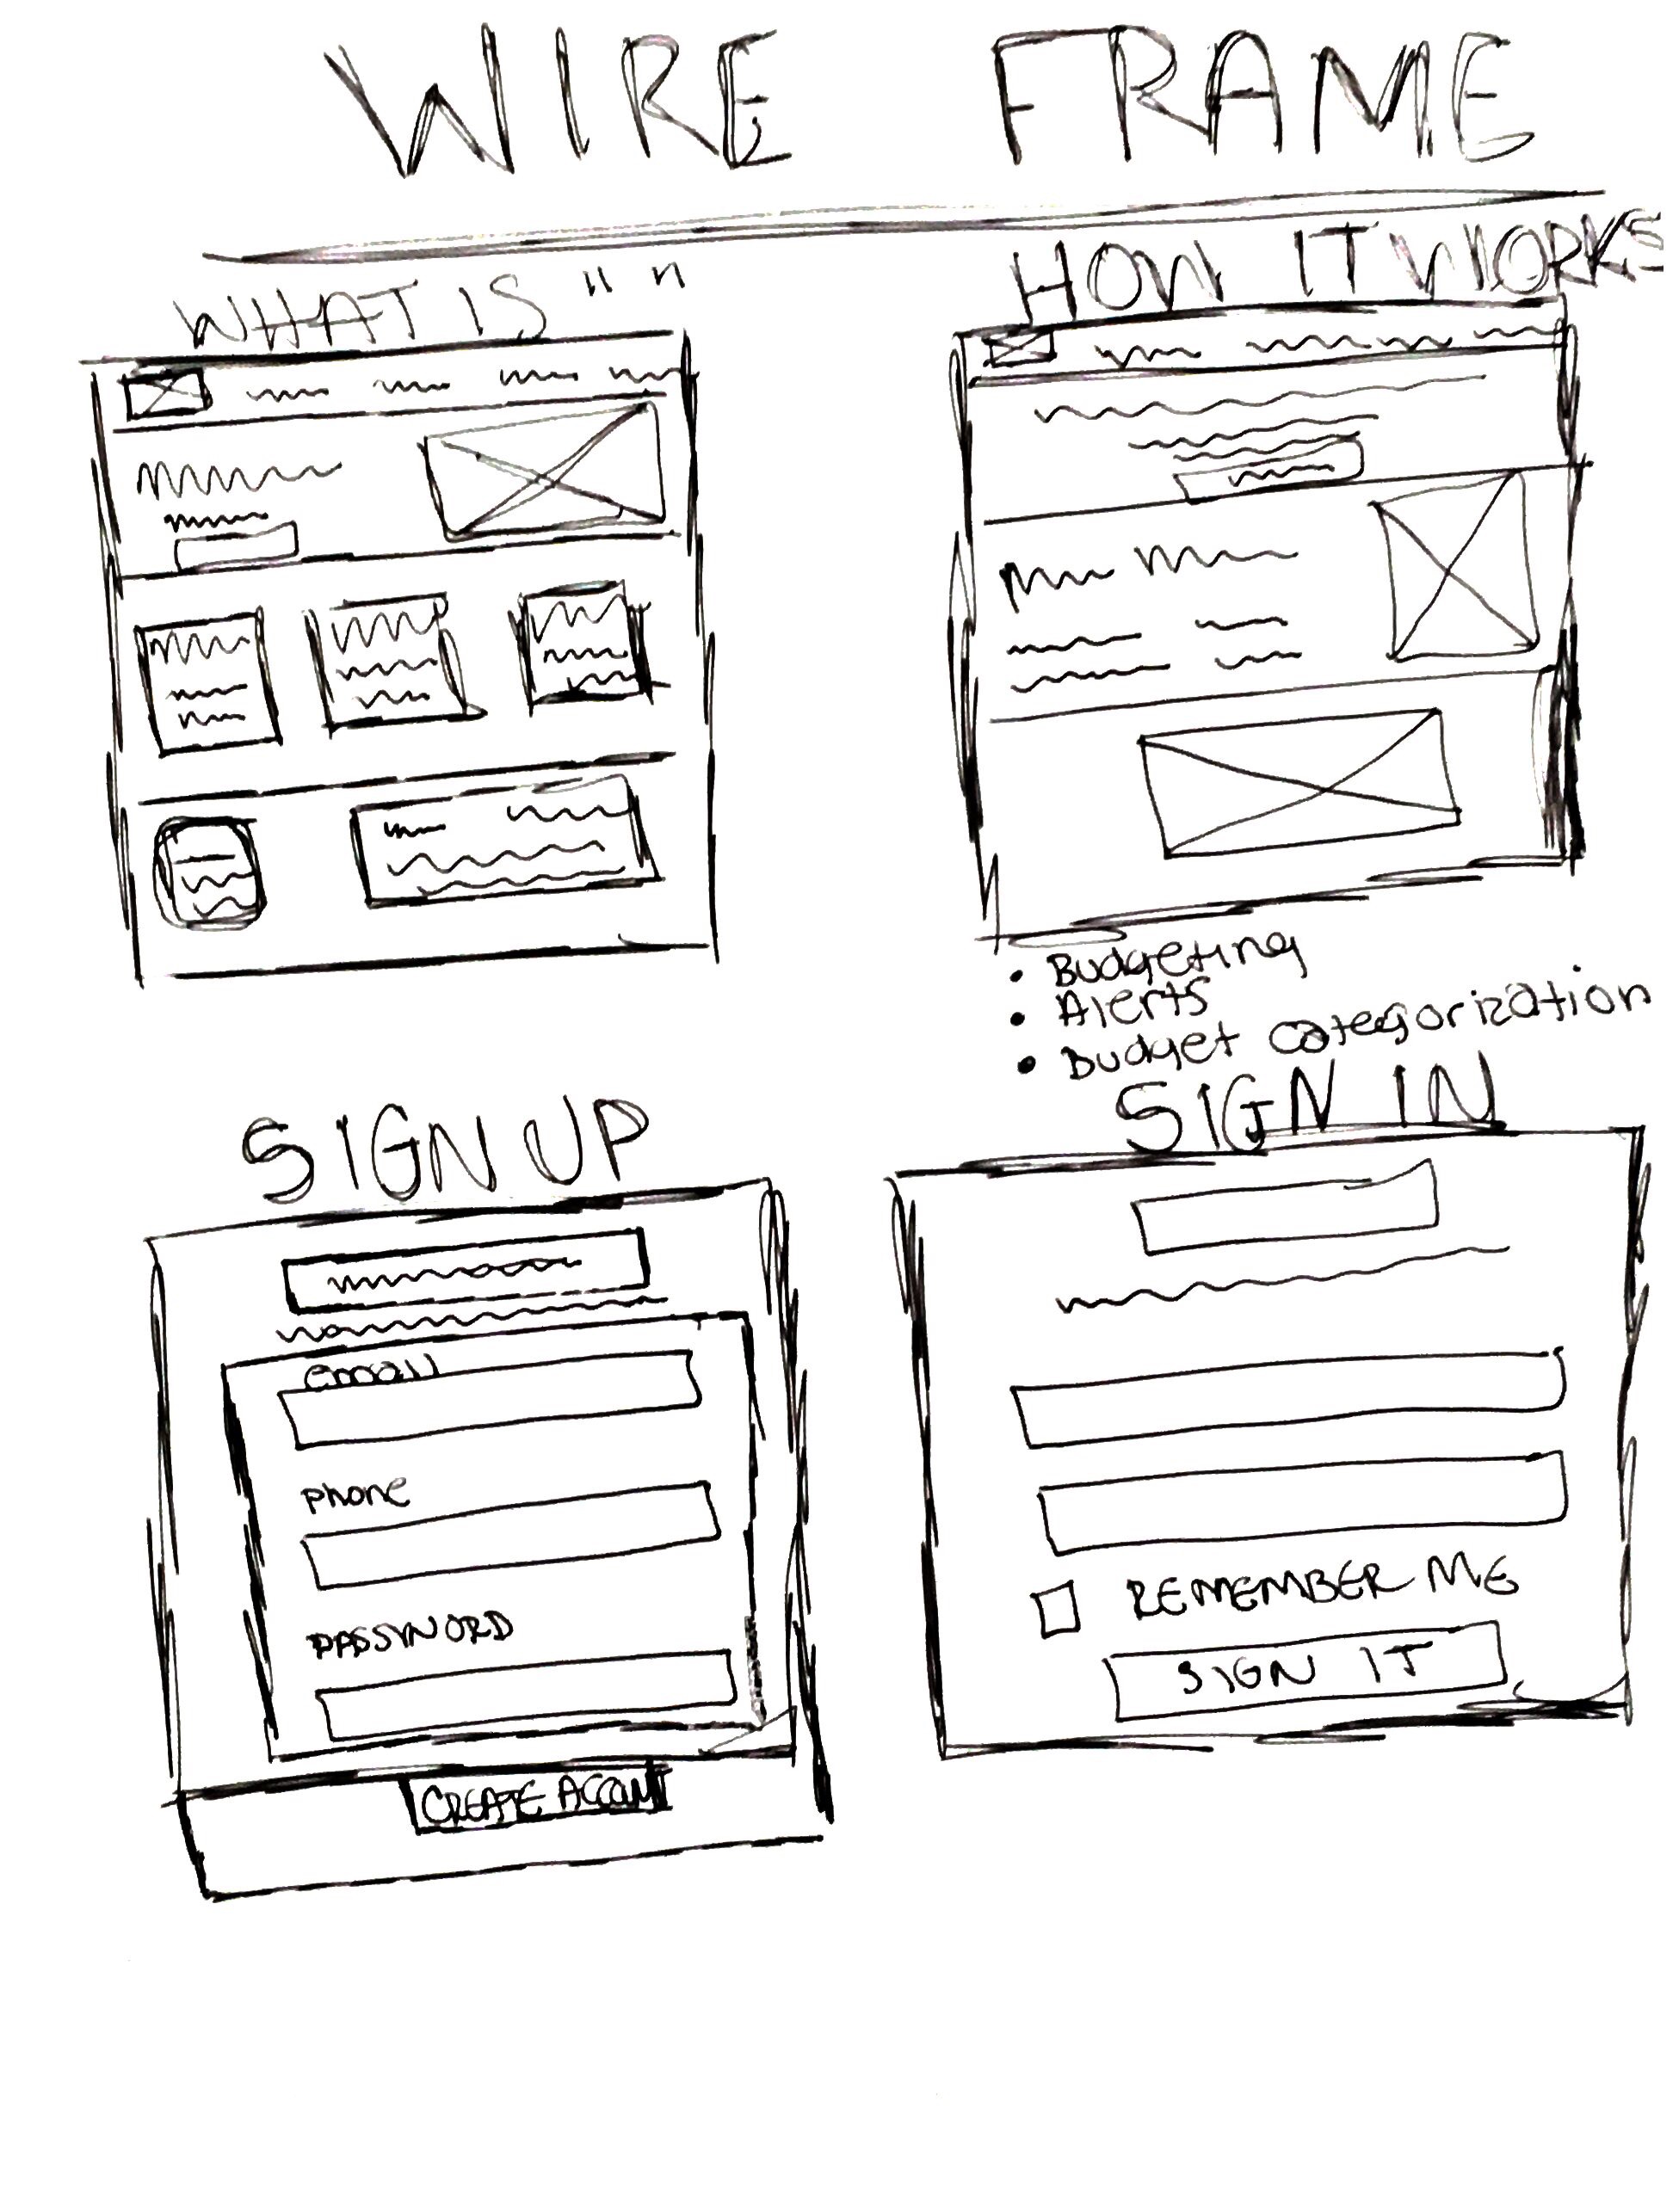 WIRE FRAME
WHAT IS " "
HOW IT WORKS
• Budgeting
• Alerts
• Budget categorization
SIGN UP
email
phone
PASSWORD
CREATE ACCOUNT
SIGN IN
REMEMBER ME
SIGN IT